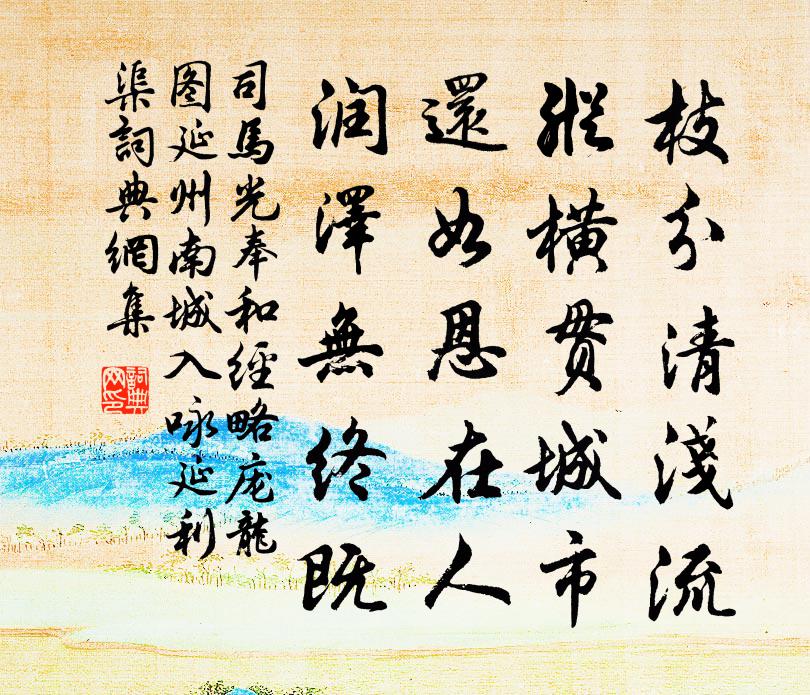 枝分清淺流
縱橫贯城市
還如恩在人
润澤無終既
司馬光奉和經略庞龍
图延州南城入咏延利
渠詞典網集
詞典
网印